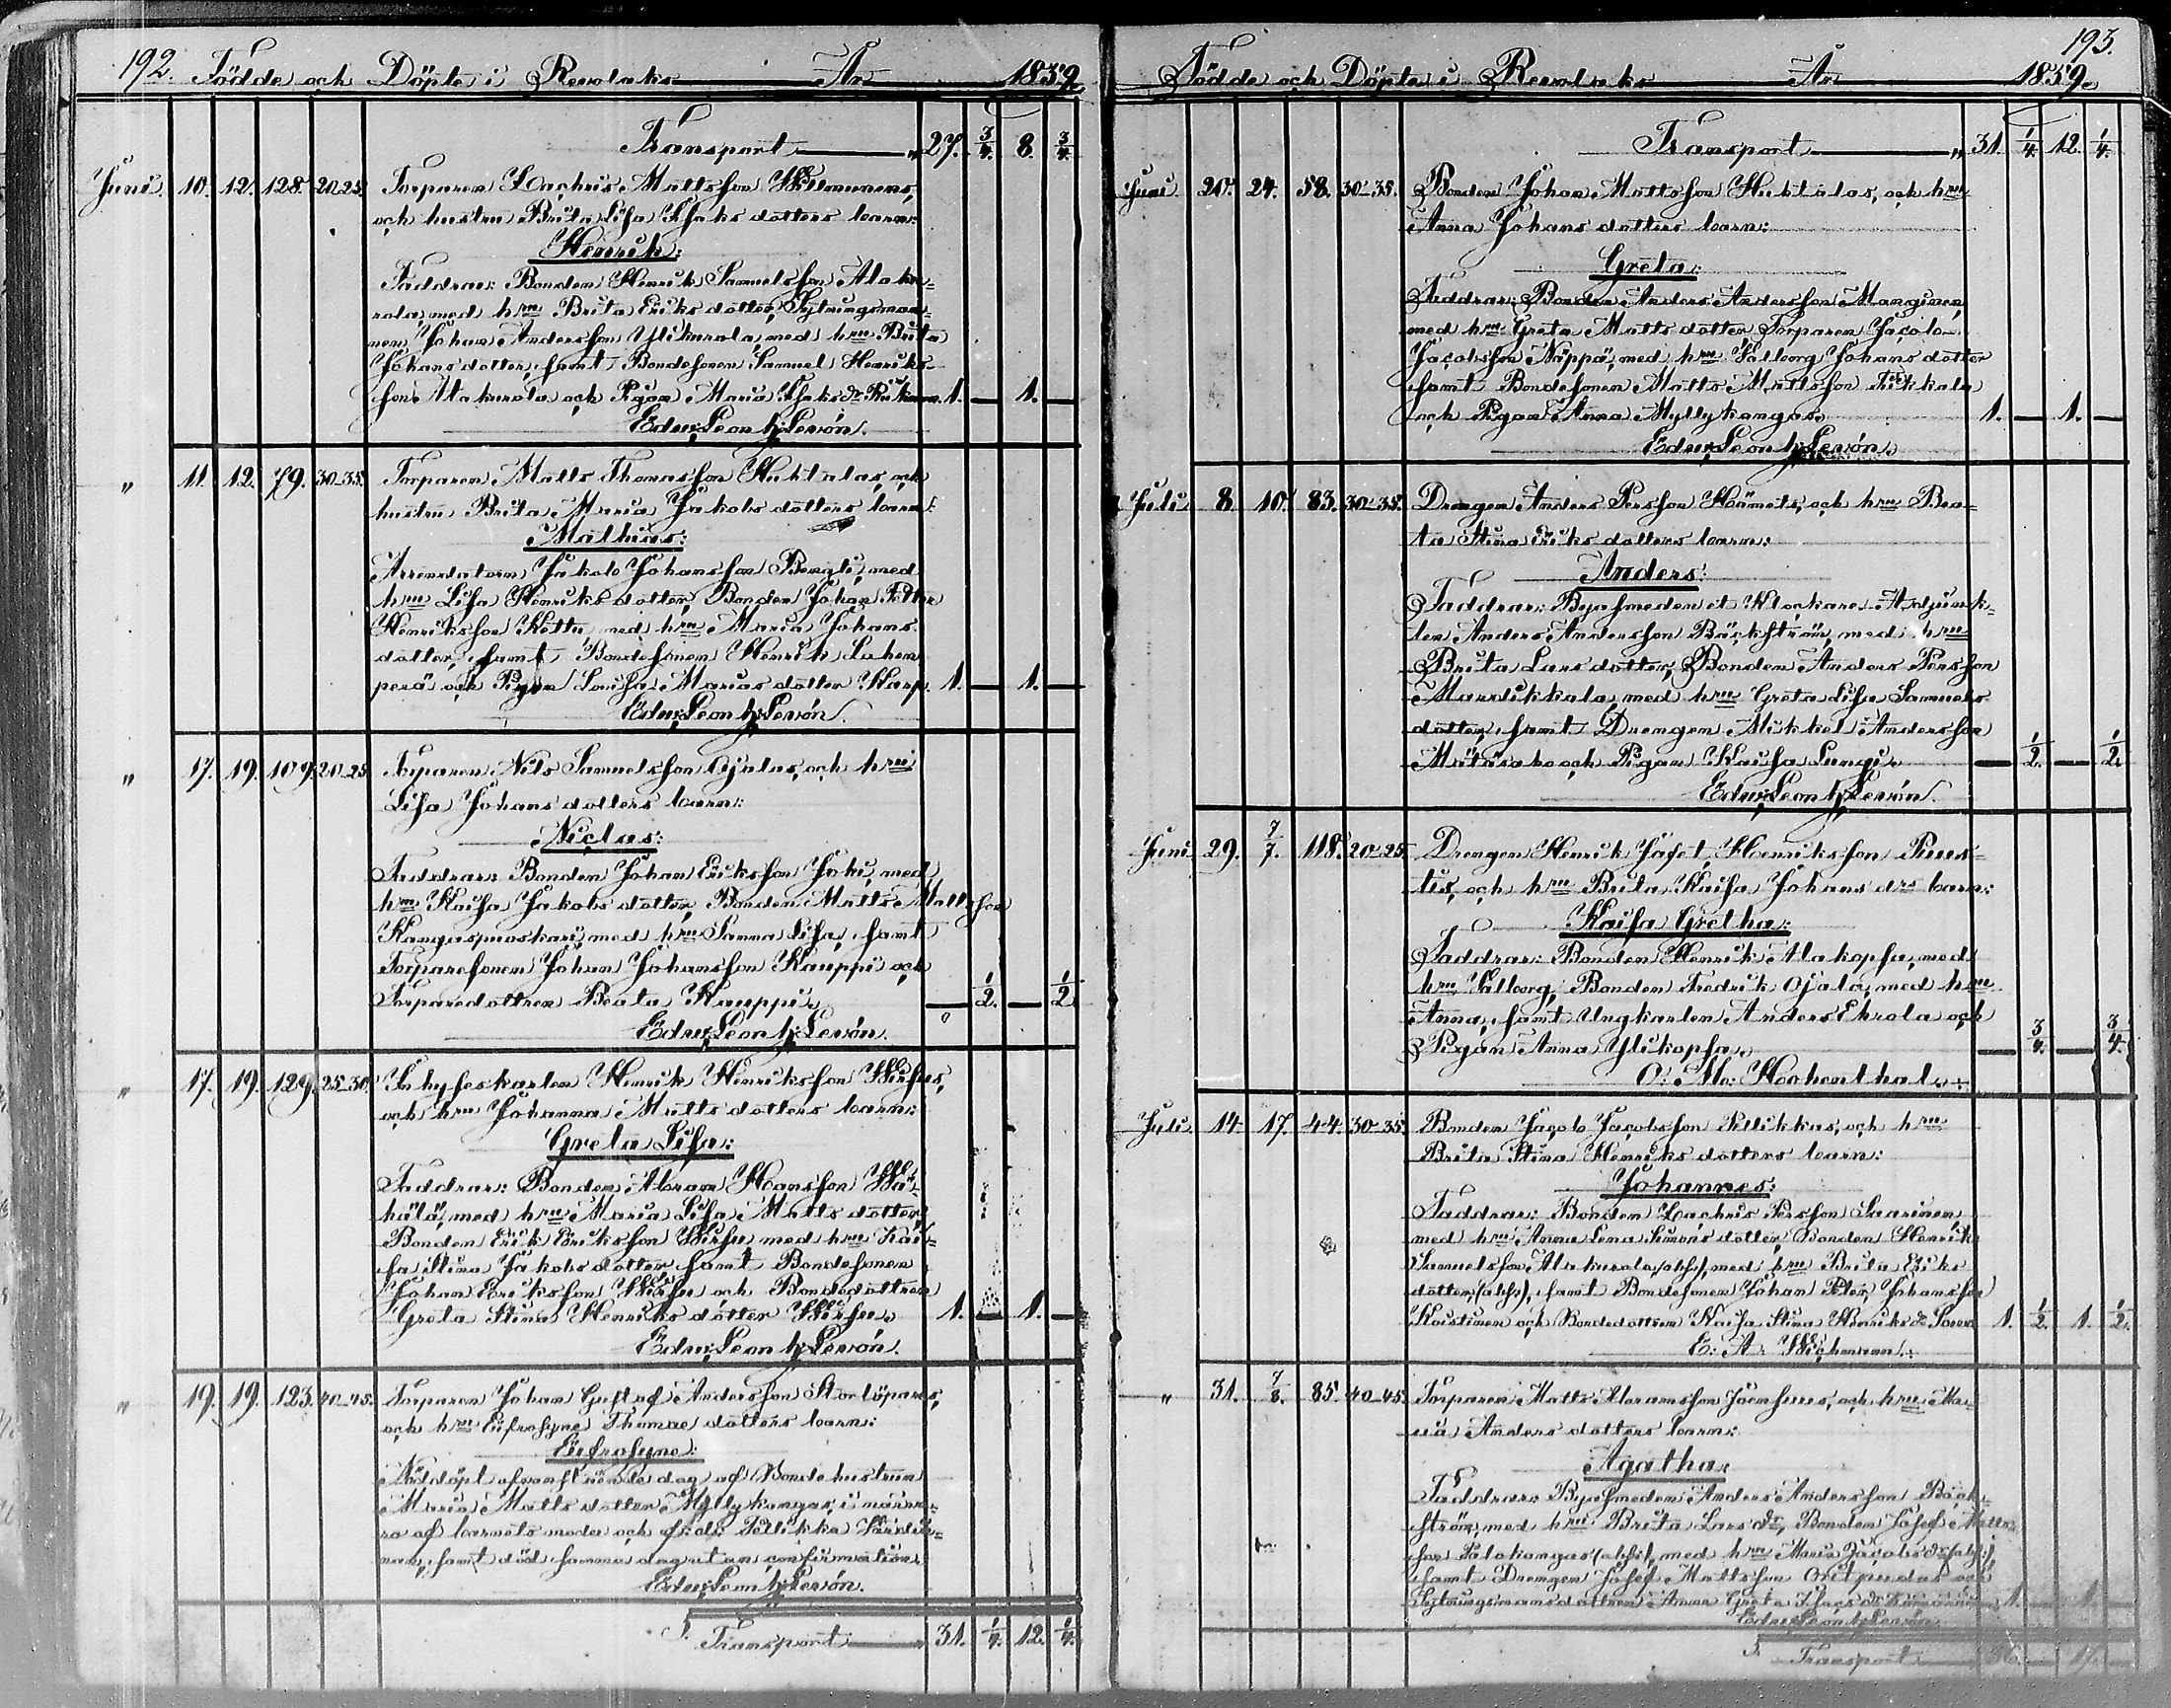 192. Födde och Döpte i Revolaks År 1839
Transport 27. 3/4. 8. 3/4.
Juni. 10. 12. 128. 20-25. Torparen Zachris Mattsson
och hustru Brita Lisa Isaks dotters barn:
Henrik:
Faddrar: Bonden Henrik Samuelsson Alaku-
rola, med hru Brita Eriks dotter, Sytningsman-
nen Johan Andersson Ylikurola, med hru Brita
Johans dotter, samt Bondesonen Samuel Henriks-
son Alakurola och Pigan Maria Isaks dr 1. — 1. —
Edw: Leon h: Levón.
„ 11. 12. 79. 30-35. Torparen Matts Thomasson Huhtalas, och
hustru Brita Maria Jakobs dotters barn:
Mathias:
Arrendatorn Jakob Johansson Bengti, med
hru Lisa Henriks dotter, Bonden Johan Petter
Henriksson Kettu med hru Maria Johans
dotter, samt Bondesonen Henrik Lahen
perä och Pigan Lovisa Marias dotter Harp. 1. — 1. —
Edw: Leon h: Levón.
„ 17. 19. 109. 20-25 Torparen Nils Samuelsson Ojalas, och hru
Lisa Johans dotters barn:
Niclas:
Faddrar: Bonden Johan Eriksson Joki, med
hru Kaisa Jakobs dotter, Bonden Matts Mattsson
Kangaspuoskari, med hru Sanna Lisa, samt
Torparesonen Johan Johansson Kauppi och
Torparedottren Beata Kauppi. — 1/2. — 1/2
Edw: Leon h: Levón.
„ 17. 19. 129. 25-30. Inhyseskarlen Henrik Henriksson Wirsus,
och hru Johanna Matts dotters barn:
Greta Lisa:
Faddrar: Bonden Abram Hansson Wä-
hälä, med hru Maria Lisa Matts dotter,
Bonden Erik Eriksson Wirsu med hru Kai-
sa Stina Jakobs dotter samt Bondesonen
Johan Eriksson Wirsu och Bondedottren
Greta Stina Henriks dotter Wirsu. 1. — 1. —
Edw: Leon h: Levón.
„ 19. 19. 123. 40-45. Torparen Johan Gustaf Andersson Storlöpares,
och hru Eufrosyne Thomae dotters barn:
Eufrosyne:
Nöddöpt ofvanstående dag af Bondehustrun
Maria Matts dotter Myllykangas, i närva-
ro af barnets moder och Pellikka Värdin-
nan, samt död samma dag utan confirmation.
Edw: Leon h: Levón.
Transport 31. 1/4. 12. 1/4.
193.
Födde och Döpte i Revolaks År 1839.
Transport „ 31. 1/4. 12. 1/4.
Juni. 20. 24. 58. 30-35. Bonden Johan Mattsson Huhtalas, och hru
Anna Johans dotters barn:
Greta:
Faddrar: Bonden Anders Andersson Manginen,
med hru Greta Matts dotter, Torparen Jacob
Jacobsson Näppä, med hru Valborg Johans dotter
samt Bondesonen Matts Mattsson Tuikkala
och Pigan Anna Myllykangas. 1. — 1. —
Edw: Leon h: Levón.
Juli. 8. 10. 83. 30-35. Drengen Anders Persson Hämets, och hru Bea-
ta Stina Eriks dotters barn:
Anders:
Faddrar: Bysmeden et Klockare Adjunk-
ten Anders Andersson Bäckström, med hru
Brita Lars dotter, Bonden Anders Persson
Mardikkala, med hru Greta Lisa Samuels
dotter, samt Drengen Mikkel Andersson
Mätäsaho och Pigan Kaisa Lungi. — 1/2. — 1/2.
Edw: Leon h: Levón.
Juni. 29. 7/7. 118. 20-25. Drengen Henrik Jafet Henriksson Ruus-
tis, och hru Brita Kaisa Johans drs barn:
Kaisa Gretha:
Faddrar: Bonden Henrik Alakopsa, med
hru Valborg, Bonden Fredrik Ojala, med hru
Anna, samt Ungkarlen Anders Ehrola och
Pigan Anna Ylikopsa. — 3/4. — 3/4.
O: Mo: Hohenthal.
Juli. 14. 17. 44. 30-35. Bonden Jacob Jacobsson Pellikkas, och hru
Brita Stina Henriks dotters barn:
Johannes:
Faddrar: Bonden Zachris Persson Saarinen
med hru Anna Lena Simons dotter, Bonden Henrik
Samuelsson Alakurola (abs), med hru Brita Eriks
dotter, (abs), samt Bondesonen Johan Peter Johansson
Koistinen och Bondedottren Kaisa Stina Henriks dr 1. 1/2. 1. 1/2.
E: A: Wichmann.
„ 31. 7/8. 85. 40-45. Torparen Matts Abramsson Joensuus, och hru Ma-
ria Anders dotters barn:
Agatha:
Faddrar: Bysmeden Anders Andersson Bäck-
ström, med hru Brita Lars dr, Bonden Josef Matts-
son Palokangas (abs), med hru Maria Jacobs dr (abs),
samt Drengen Josef Mattsson och
Sytningsmansdottren Anna Greta Isacs dr 1. — 1. —
Edw: Leon h: Levón.
Transport